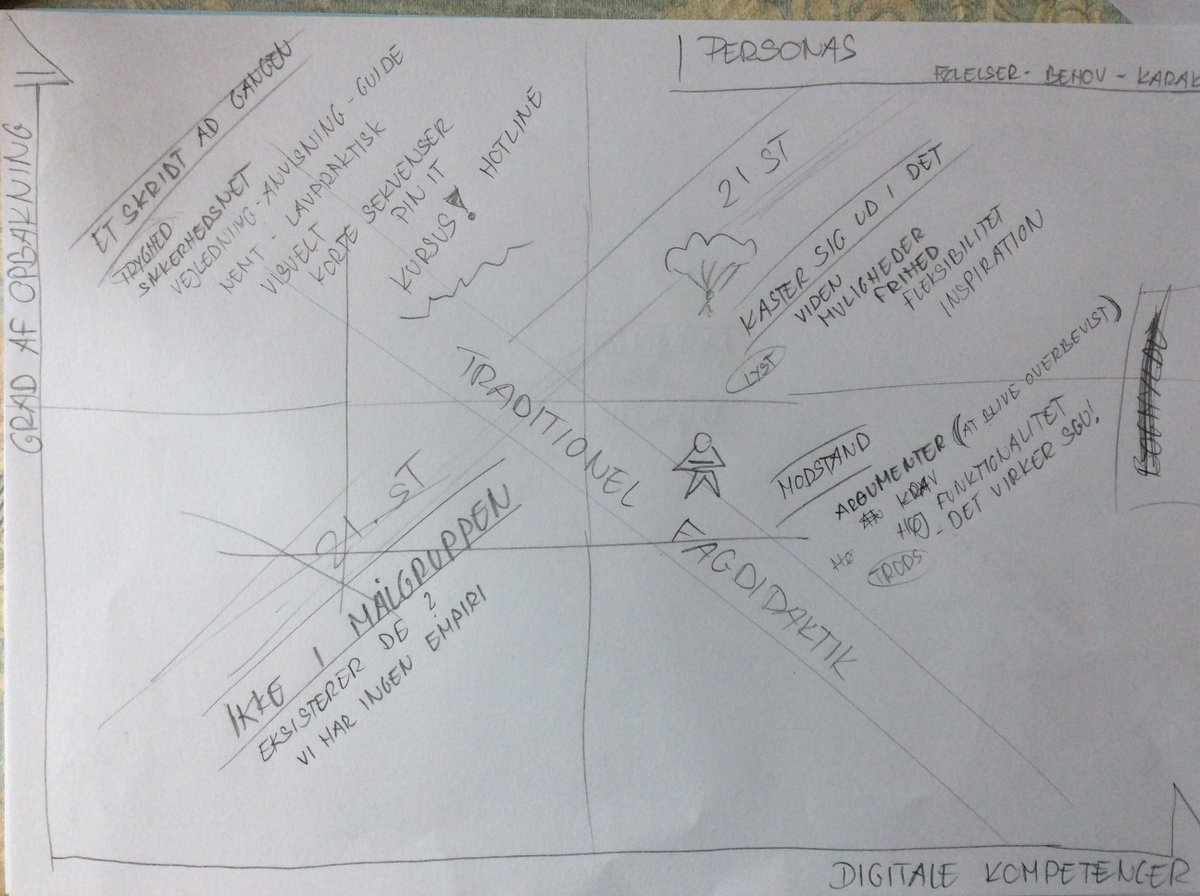 PERSONAS
FØLELSER - BEHOV - KARAK
GRAD AF OPBAKNING
ET SKRIDT AD GANGEN
TRYGHED
SIKKERHEDSNET
VEJLEDNING - ANVISNING - GUIDE
NEMT - LAVPRAKTISK
VISUELT
KORTE SEKVENSER
PIN IT
KURSUS! HOTLINE
21 ST
KASTER SIG UD I DET
VIDEN
MULIGHEDER
FRIHED
FLEKSIBILITET
INSPIRATION
LYST
TRADITIONEL FAGDIDAKTIK
MODSTAND
ARGUMENTER (AT BLIVE OVERBEVIST)
KRAV
HØJ FUNKTIONALITET
- DET VIRKER SGU!
TRODS
21. ST
IKKE I MÅLGRUPPEN
EKSISTERER DE?
VI HAR INGEN EMPIRI
DIGITALE KOMPETENCER